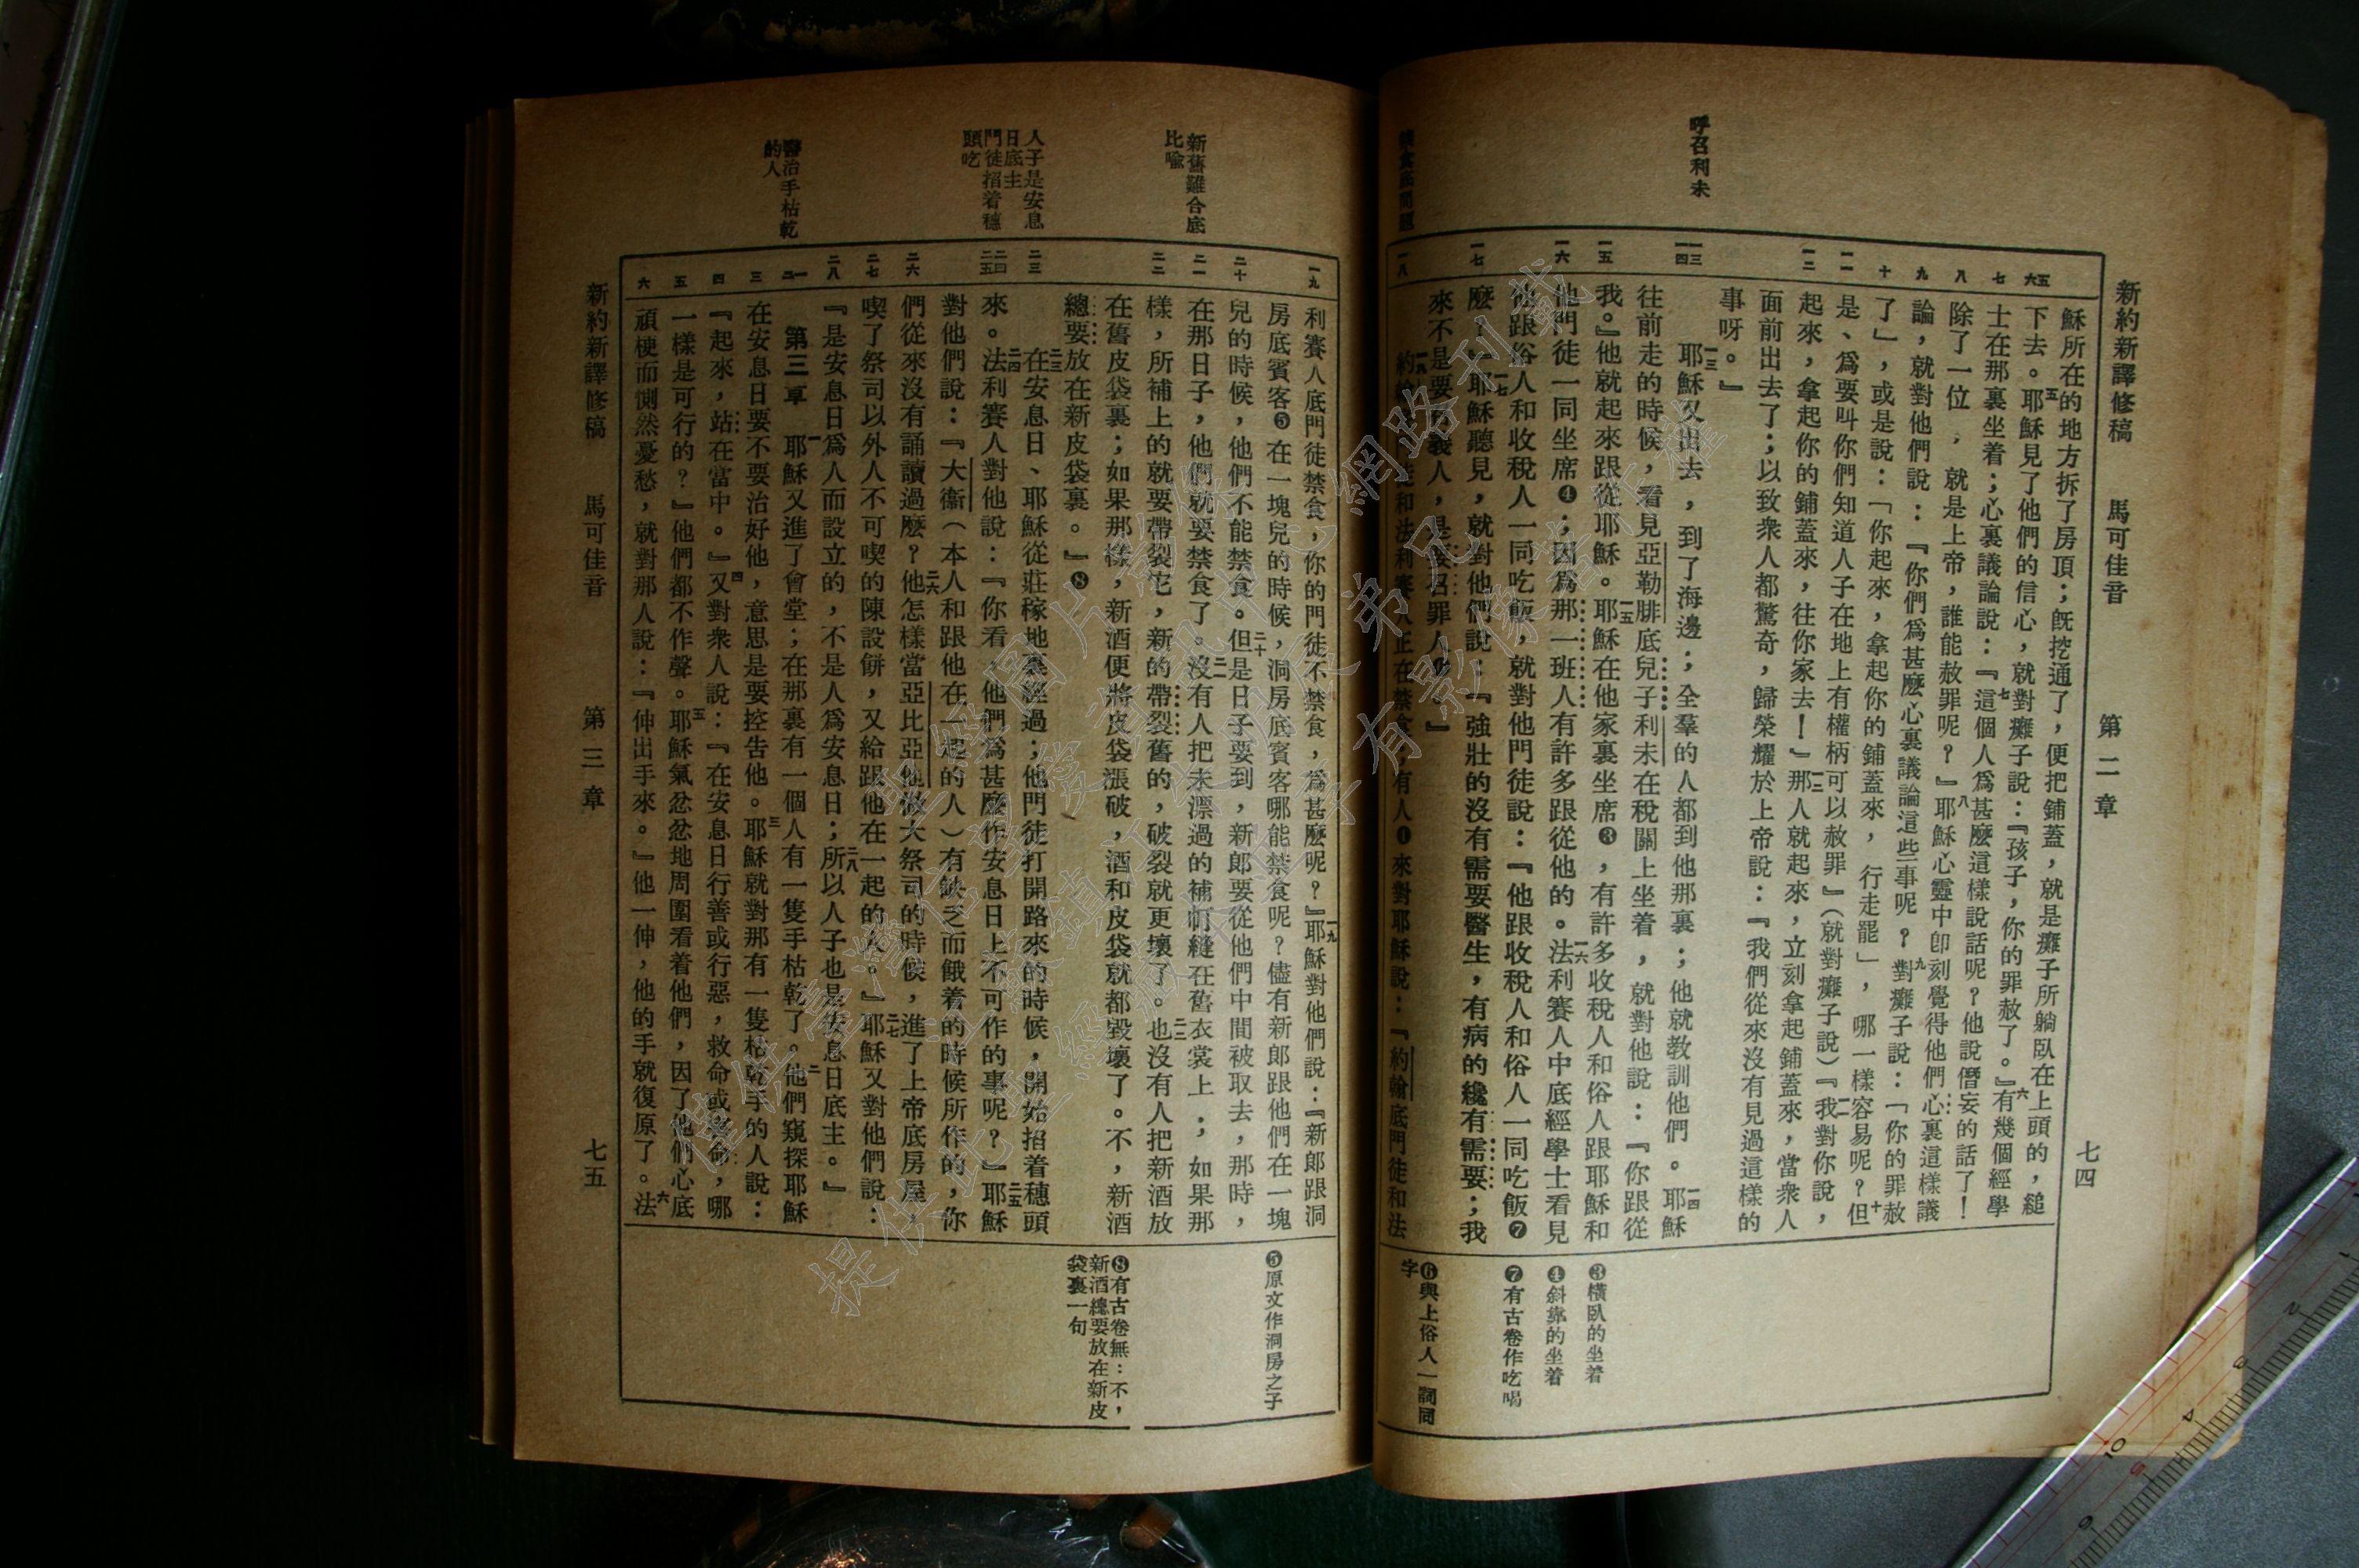 新約新譯修稿　馬可佳音　第二章　七四
呼召利未
禁食底問題
五
六
七
八
九
十
一一
一二
一三
一四
一五
一六
一七
一八
穌所在的地方拆了房頂；旣挖通了，便把鋪蓋，就是癱子所躺臥在上頭的，縋
下去。五耶穌見了他們的信心，就對癱子說：『孩子，你的罪赦了。』六有幾個經學
士在那裏坐着；心裏議論說：七『這個人爲甚麼這樣說話呢？他說僭妄的話了！
除了一位，就是上帝，誰能赦罪呢？』八耶穌心靈中卽刻覺得他們心裏這樣議
論，就對他們說：『你們爲甚麼心裏議論這些事呢？九對癱子說：「你的罪赦
了」，或是說：「你起來，拿起你的鋪蓋來，行走罷」，哪一樣容易呢？十但
是、爲要叫你們知道人子在地上有權柄可以赦罪』（就對癱子說）一一『我對你說，
起來，拿起你的鋪蓋來，往你家去！』一二那人就起來，立刻拿起鋪蓋來，當衆人
面前出去了；以致衆人都驚奇，歸榮耀於上帝說：『我們從來沒有見過這樣的
事呀。』
一三耶穌又出去，到了海邊；全羣的人都到他那裏；他就教訓他們。一四耶穌
往前走的時候，看見亞勒腓底兒子利未在稅關上坐着，就對他說：『你跟從
我。』他就起來跟從耶穌。一五耶穌在他家裏坐席❸，有許多收稅人和俗人跟耶穌和
他門徒一同坐席❹；因爲那一班人有許多跟從他的。一六法利賽人中底經學士看見
他跟俗人和收稅人一同吃飯，就對他門徒說：『他跟收稅人和俗人一同吃飯❼
麼？』一七耶穌聽見，就對他們說：『強壯的沒有需要醫生，有病的纔有需要；我
來不是要召義人，是要召罪人❻。』
一八約翰門徒和法利賽人正在禁食，有人❶來對耶穌說：『約翰底門徒和法
❸橫臥的坐着
❹斜靠的坐着
❼有古卷作吃喝
❻與上俗人一詞同
字
新舊難合底
比喩
人子是安息
日底主
門徒搯着穗
頭吃
醫治手枯乾
的人
一九
二十
二一
二二
二三
二四
二五
二六
二七
二八
一
二
三
四
五
六
利賽人底門徒禁食，你的門徒不禁食，爲甚麼呢？』一九耶穌對他們說：『新郎跟洞
房底賓客❺在一塊兒的時候，洞房底賓客哪能禁食呢？儘有新郎跟他們在一塊
兒的時候，他們不能禁食。二十但是日子要到，新郎要從他們中間被取去，那時，
在那日子，他們就要禁食了。二一沒有人把未漂過的補帄縫在舊衣裳上；如果那
樣，所補上的就要帶裂它，新的帶裂舊的，破裂就更壞了。二二也沒有人把新酒放
在舊皮袋裏；如果那樣，新酒便將皮袋漲破，酒和皮袋就都毀壞了。不，新酒
總要放在新皮袋裏。』❽
二三在安息日、耶穌從莊稼地裏經過；他門徒打開路來的時候，開始搯着穗頭
來。二四法利賽人對他說：『你看，他們爲甚麼作安息日上不可作的事呢？』二五耶穌
對他們說：『大衞（本人和跟他在一起的人）有缺乏而餓着的時候所作的，你
們從來沒有誦讀過麼？二六他怎樣當亞比亞他做大祭司的時候，進了上帝底房屋，
喫了祭司以外人不可喫的陳設餅，又給跟他在一起的人。』二七耶穌又對他們說：
『是安息日爲人而設立的，不是人爲安息日；二八所以人子也是安息日底主。』
第三章　一耶穌又進了會堂；在那裏有一個人有一隻手枯乾了。二他們窺探耶穌
在安息日要不要治好他，意思是要控告他。三耶穌就對那有一隻枯乾手的人說：
『起來，站在當中。』四又對衆人說：『在安息日行善或行惡，救命或害命，哪
一樣是可行的？』他們都不作聲。五耶穌氣忿忿地周圍看着他們，因了他們心底
頑梗而惻然憂愁，就對那人說：『伸出手來。』他一伸，他的手就復原了。六法
❺原文作洞房之子
❽有古卷無：不，
新酒總要放在新皮
袋裏一句
新約新譯修稿　馬可佳音　第三章　七五